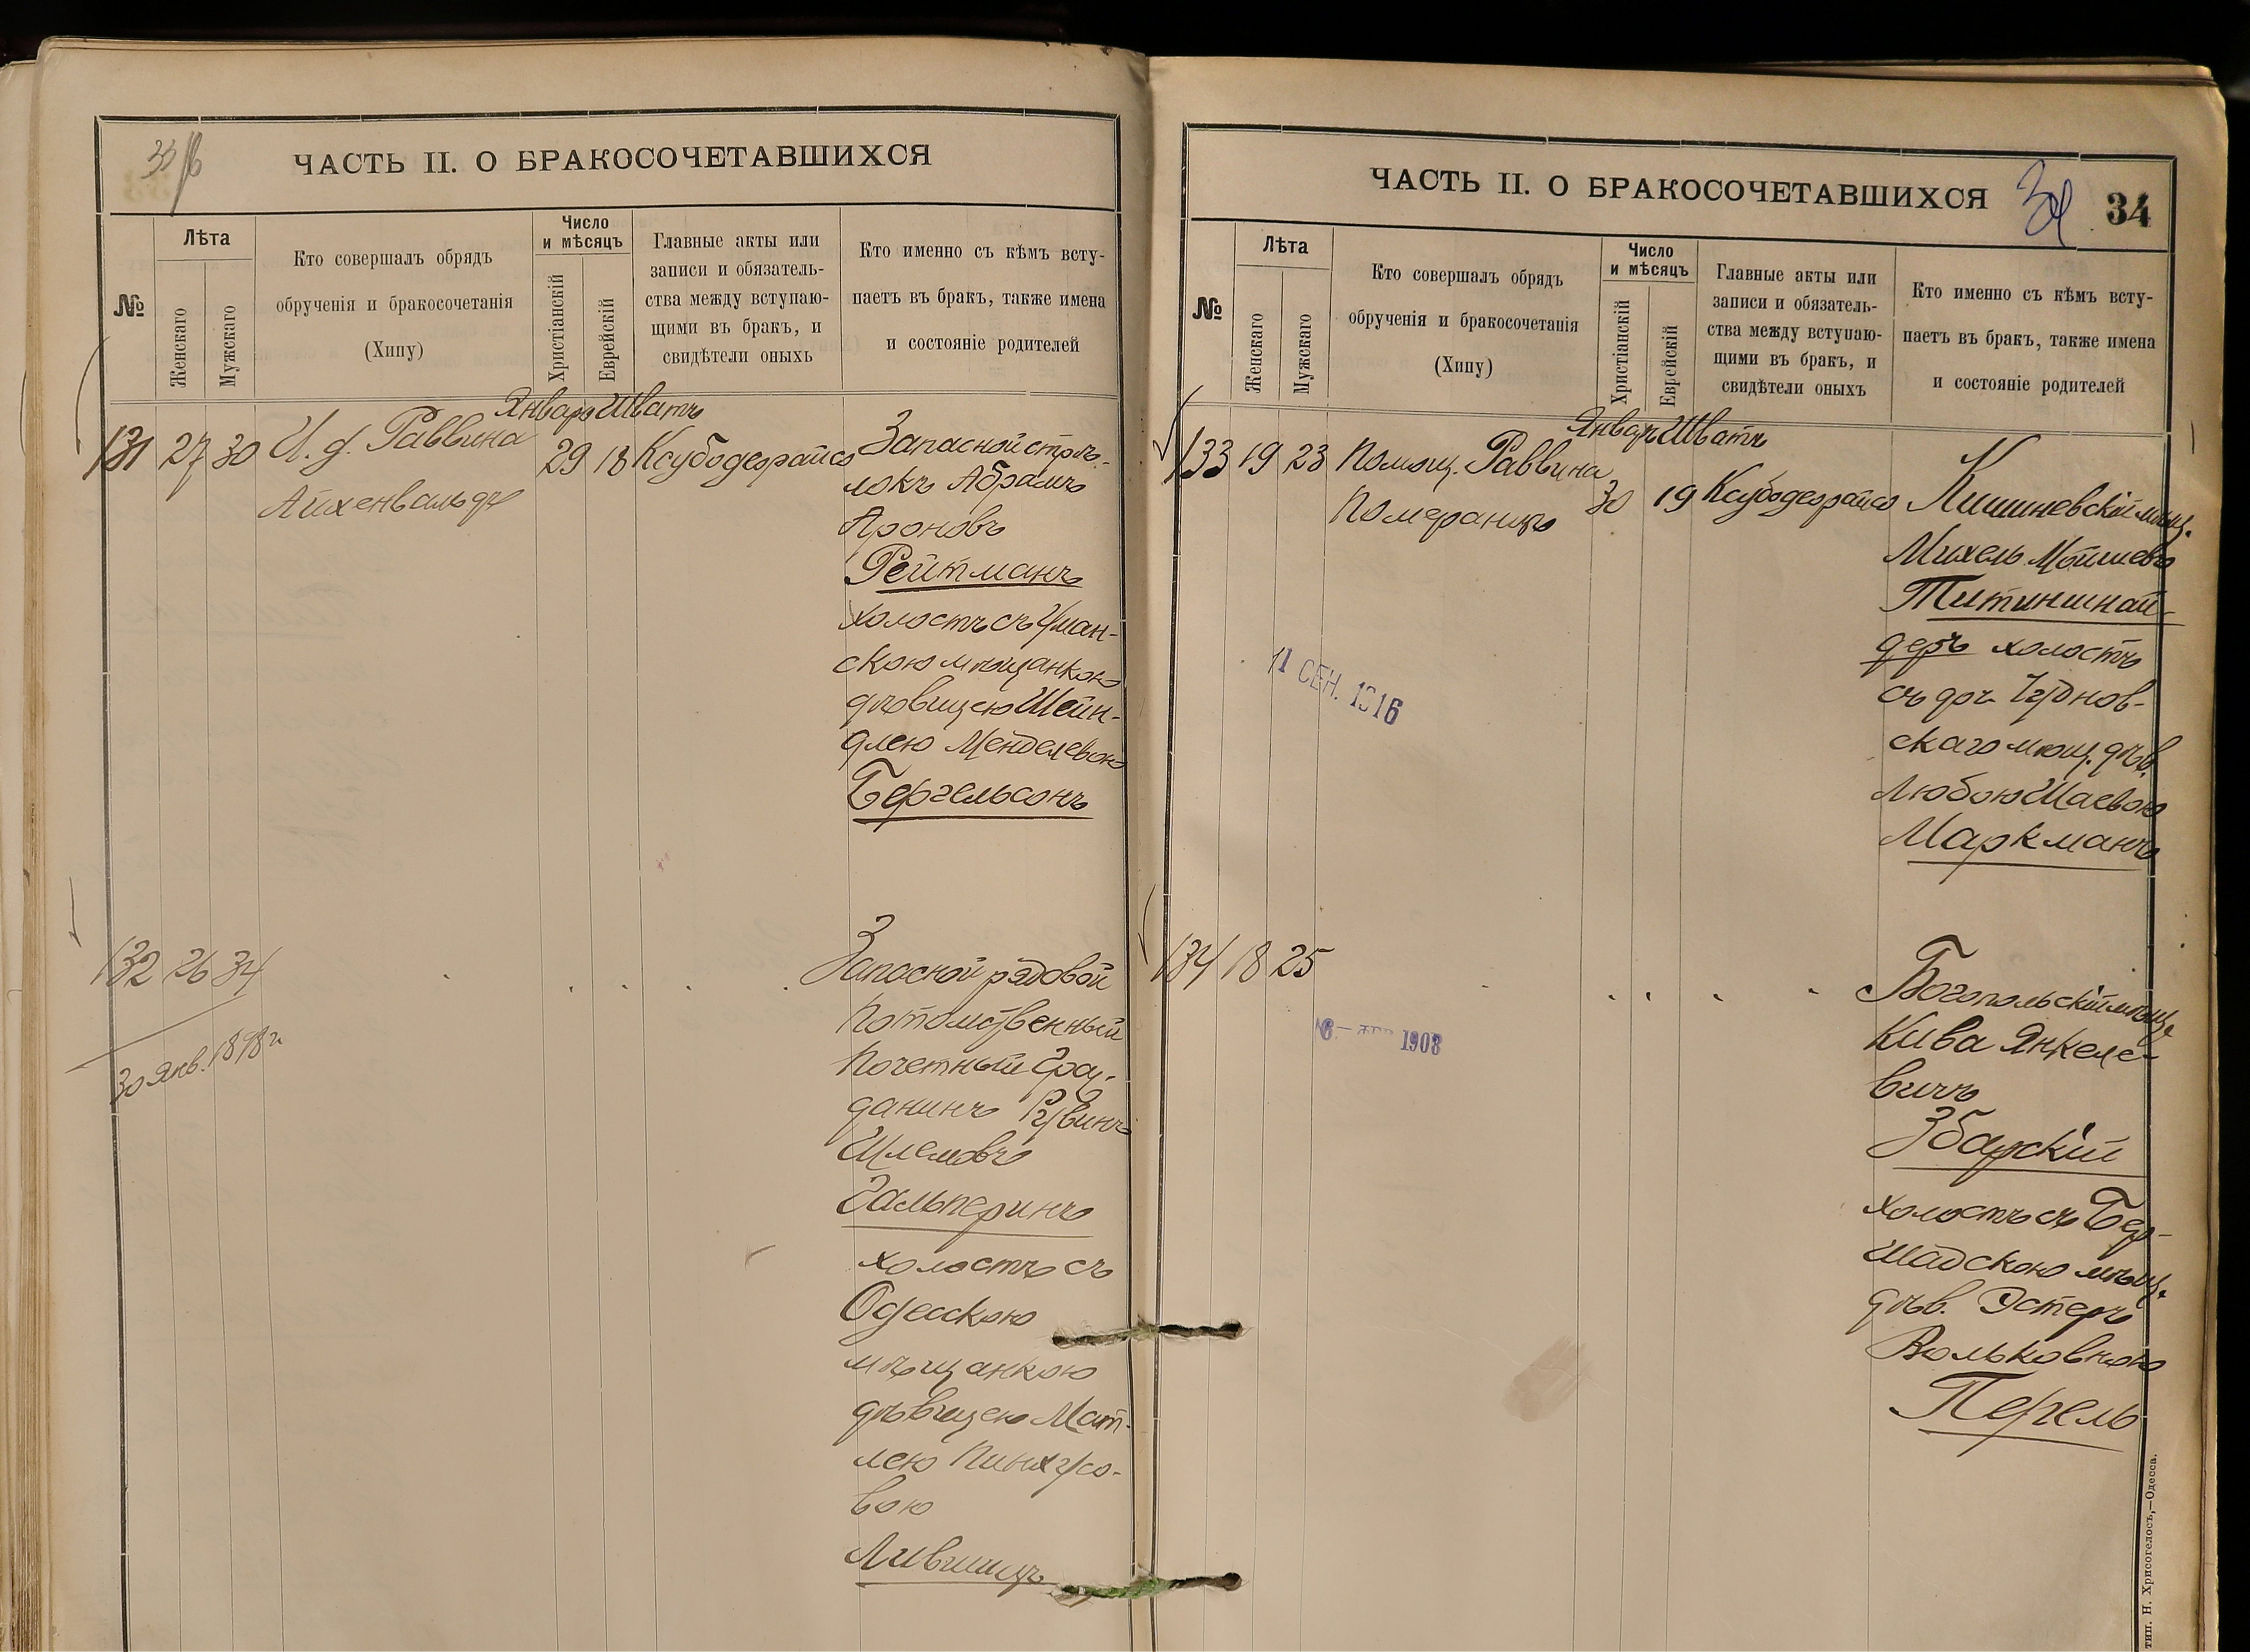 33 об
ЧАСТЬ II. О БРАКОСОЧЕТАВШИХСЯ
№
Лѣта
Женскаго
Мужскаго
Кто совершалъ обрядъ
обрученія и бракосочетанія
(Хипу)
Число
и мѣсяцъ
Христіанскій
Еврейскій
Главные акты или
записи и обязатель-
ства между вступаю-
щими въ бракъ, и
свидѣтели оныхъ
Кто именно съ кѣмъ всту-
паетъ въ бракъ, также имена
и состояніе родителей
Январь Шватъ
131 27 30 И. д. Раввина 29 18 Ксубодеорайсо Запасной стрѣ-
Айхенвальдъ
локъ Абрамъ
Ароновъ
Рейтманъ
холостъ съ Уман-
скою мѣщанкою
дѣвицею Шейн-
длею Менделевою
Бергельсонъ
132 26 34 Запасной рядовой
30 Янв. 1898 г.
Потомственный
Почетный Граж-
данинъ Рувинъ
Шлемовъ
Гальперинъ
холостъ съ
Одесскою
мѣщанкою
дѣвицею Мат-
лею Пинхусо-
вою
Лившицъ
ЧАСТЬ II. О БРАКОСОЧЕТАВШИХСЯ
34
34
№
Лѣта
Женскаго
Мужскаго
Кто совершалъ обрядъ
обрученія и бракосочетанія
(Хипу)
Число
и мѣсяцъ
Христіанскій
Еврейскій
Главные акты или
записи и обязатель-
ства между вступаю-
щими въ бракъ, и
свидѣтели оныхъ
Кто именно съ кѣмъ всту-
паетъ въ бракъ, также имена
и состояніе родителей
Январь Шватъ
133 19 23 Помощ. Раввина 30 19 Ксубодеорайсо Кишиневскій мѣщ.
Померанцъ
Михель Мошевъ
Титиншнай-
деръ холостъ
съ доч.
скаго мѣщ. дѣв.
Любою Шаевою
Маркманъ
11 СЕН. 1916
134 18 25 Богопольскій мѣщ.
1908
Кива Янкеле-
вичъ
Збарскій
холостъ съ Бер-
шадскою мѣщ.
дѣв. Эстеръ
Вольковною
Перель
тип. Н. Хрисогелосъ,—Одесса.